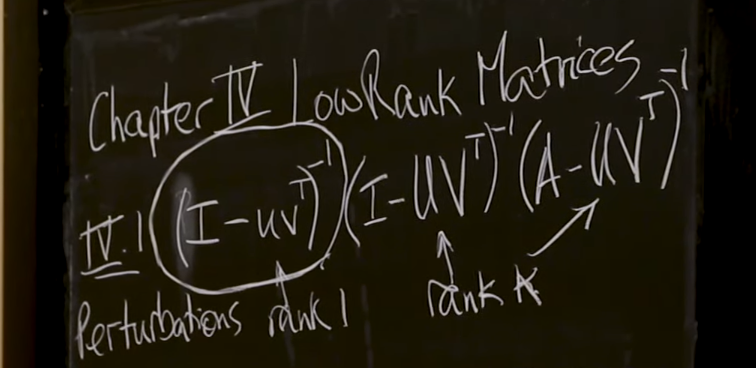 Chapter IV Low Rank Matrices
IV.1 (I-uvᵀ)⁻¹ (I-UVᵀ)⁻¹ (A-UVᵀ)⁻¹
Perturbations rank 1 rank k